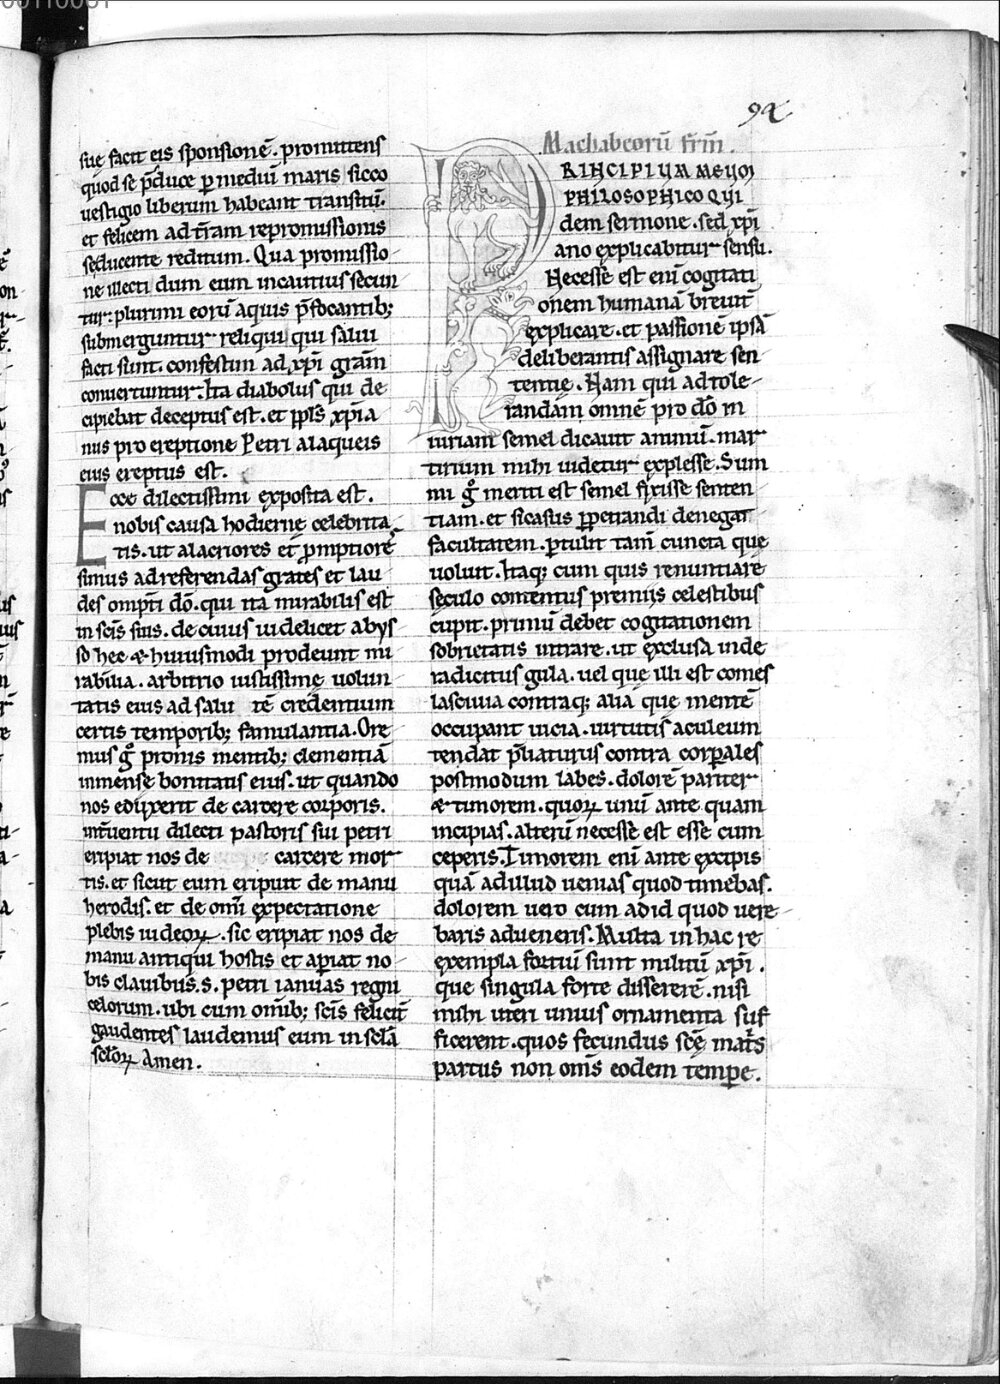 94
suę facit eis sponsionē. promittens
quod se p̄duce ꝑ mediū maris sicco
uestigio liberum habeant transitū.
et felicem ad t̄ram repromissionis
seducente reditum. Qua promissio
ne illecti dum eum incautius secun
tur: plurimi eorū aquis p̄focantib;
submerguntur reliqui qui salui
facti sunt. confestim ad xp̄i grām
conuertuntur. Ita diabolus qui de
cipiebat deceptus est. et ppl̄s xp̄ia
nus pro ereptione Petri a laqueis
eius ereptus est.
Ecce dilectissimi exposita est.
nobis causa hodiernę celebrita
tis. ut alacriores et ꝓmptiore
simus ad referendas grates et lau
des omp̄ti dō. qui ita mirabilis est
in sc̄is suis. de cuius uidelicet abys
so hec & huiusmodi prodeunt mi
rabilia. arbitrio iustissimę uolun
tatis eius ad salu tē credentium
certis temporib; famulantia. Ore
mus g̊ pronis mentib; clementiā
inmense bonitatis eius. ut quando
nos eduxerit de carcere corporis.
int̄uentu dilecti pastoris sui petri
eripiat nos de carcere mor
tis. et sicut eum eripuit de manu
herodis. et de om̄i expectatione
plebis iudeoꝝ. sic eripiat nos de
manu antiqui hostis et apiat no
bis clauibus .s. petri ianuas regni
celorum. ubi cum om̄ib; sc̄is felicit̄
gaudentes laudemus eum in sc̄lā
sc̄loꝝ Amen.
Machabeorū frm̄.
PRINCIPIUM MEUM
PHILOSOPHICO QUI
dem sermone. sed xp̄i
ano explicabitur sensu.
Necesse est enī cogitati
onem humanā breuit̄
explicare. et passionē ipsā
deliberantis assignare sen
tentię. Nam qui ad tole-
randam omnē pro dō in
iuriam semel dicauit animū. mar
tirium mihi uidetur explesse. Sum
mi g̊ meriti est semel fixisse senten
tiam. et si casus ꝑpetrandi denegat
facultatem. ꝑtulit tam̄ cuncta que
uoluit. Itaq; cum quis renuntiare
seculo contentus premiis celestibus
cupit. primū debet cogitationem
sobrietatis intrare. ut exclusa inde
radicitus gula. uel que illi est comes
lasciuia contraq; alia que mentē
occupant uicia. uirtutis aculeum
tendat p̄liaturus contra corꝑales
postmodum labes. dolorē pariter
& timorem. quoꝝ unū ante quam
incipias. alterū necesse est esse cum
ceperis. Timorem enī ante excipis
quā ad illud uenias quod timebas.
dolorem uero cum ad id quod uere-
baris adueneris. Multa in hac re
exempla fortiū sunt militū xp̄i.
que singula forte dissererē. nisi
mihi uteri unius ornamenta suf
ficerent. quos fecundus sc̄ę mat̄s
partus non om̄s eodem tempe.